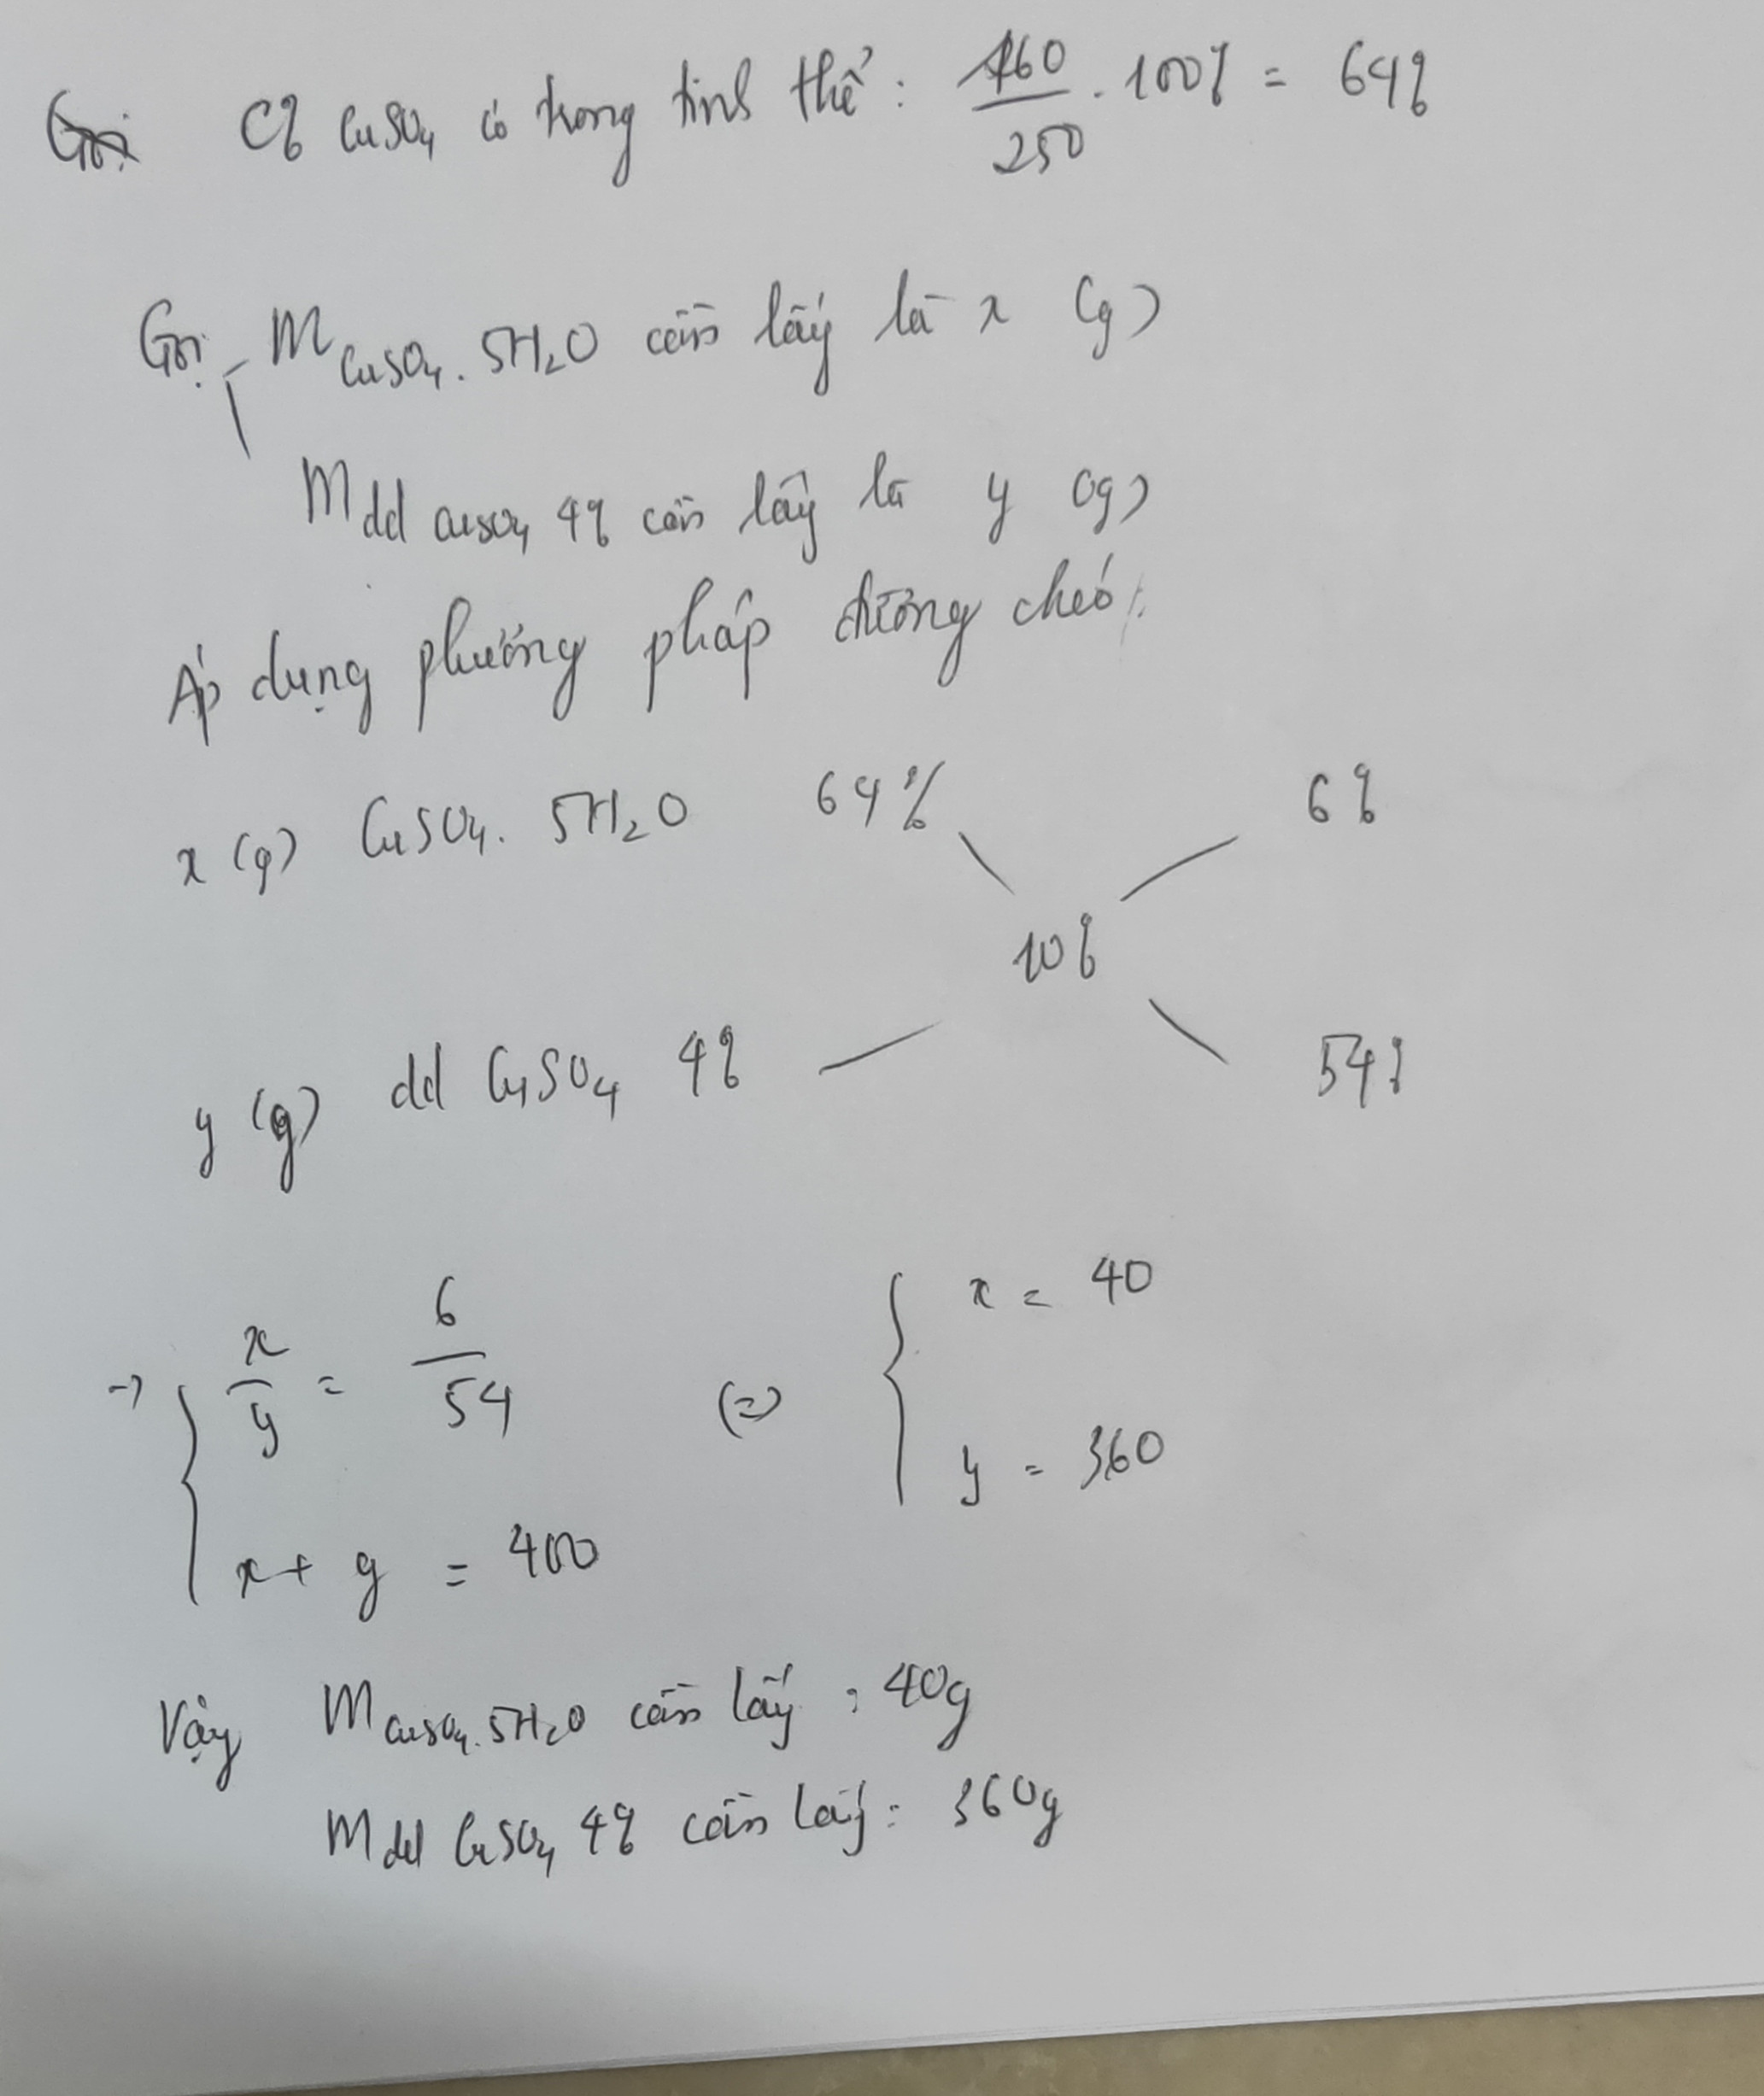 C% CuSO4 có trong tinh thể: 160/250 . 100% = 64%
Gọi m CuSO4.5H2O cần lấy là x (g)
m dd CuSO4 4% cần lấy là y (g)
Áp dụng phương pháp đường chéo:
x (g) CuSO4.5H2O 64% 6%
10%
y (g) dd CuSO4 4% 54%
→ { x/y = 6/54 (=) { x = 40
x + y = 400 y = 360
Vậy m CuSO4.5H2O cần lấy : 40g
m dd CuSO4 4% cần lấy : 360g